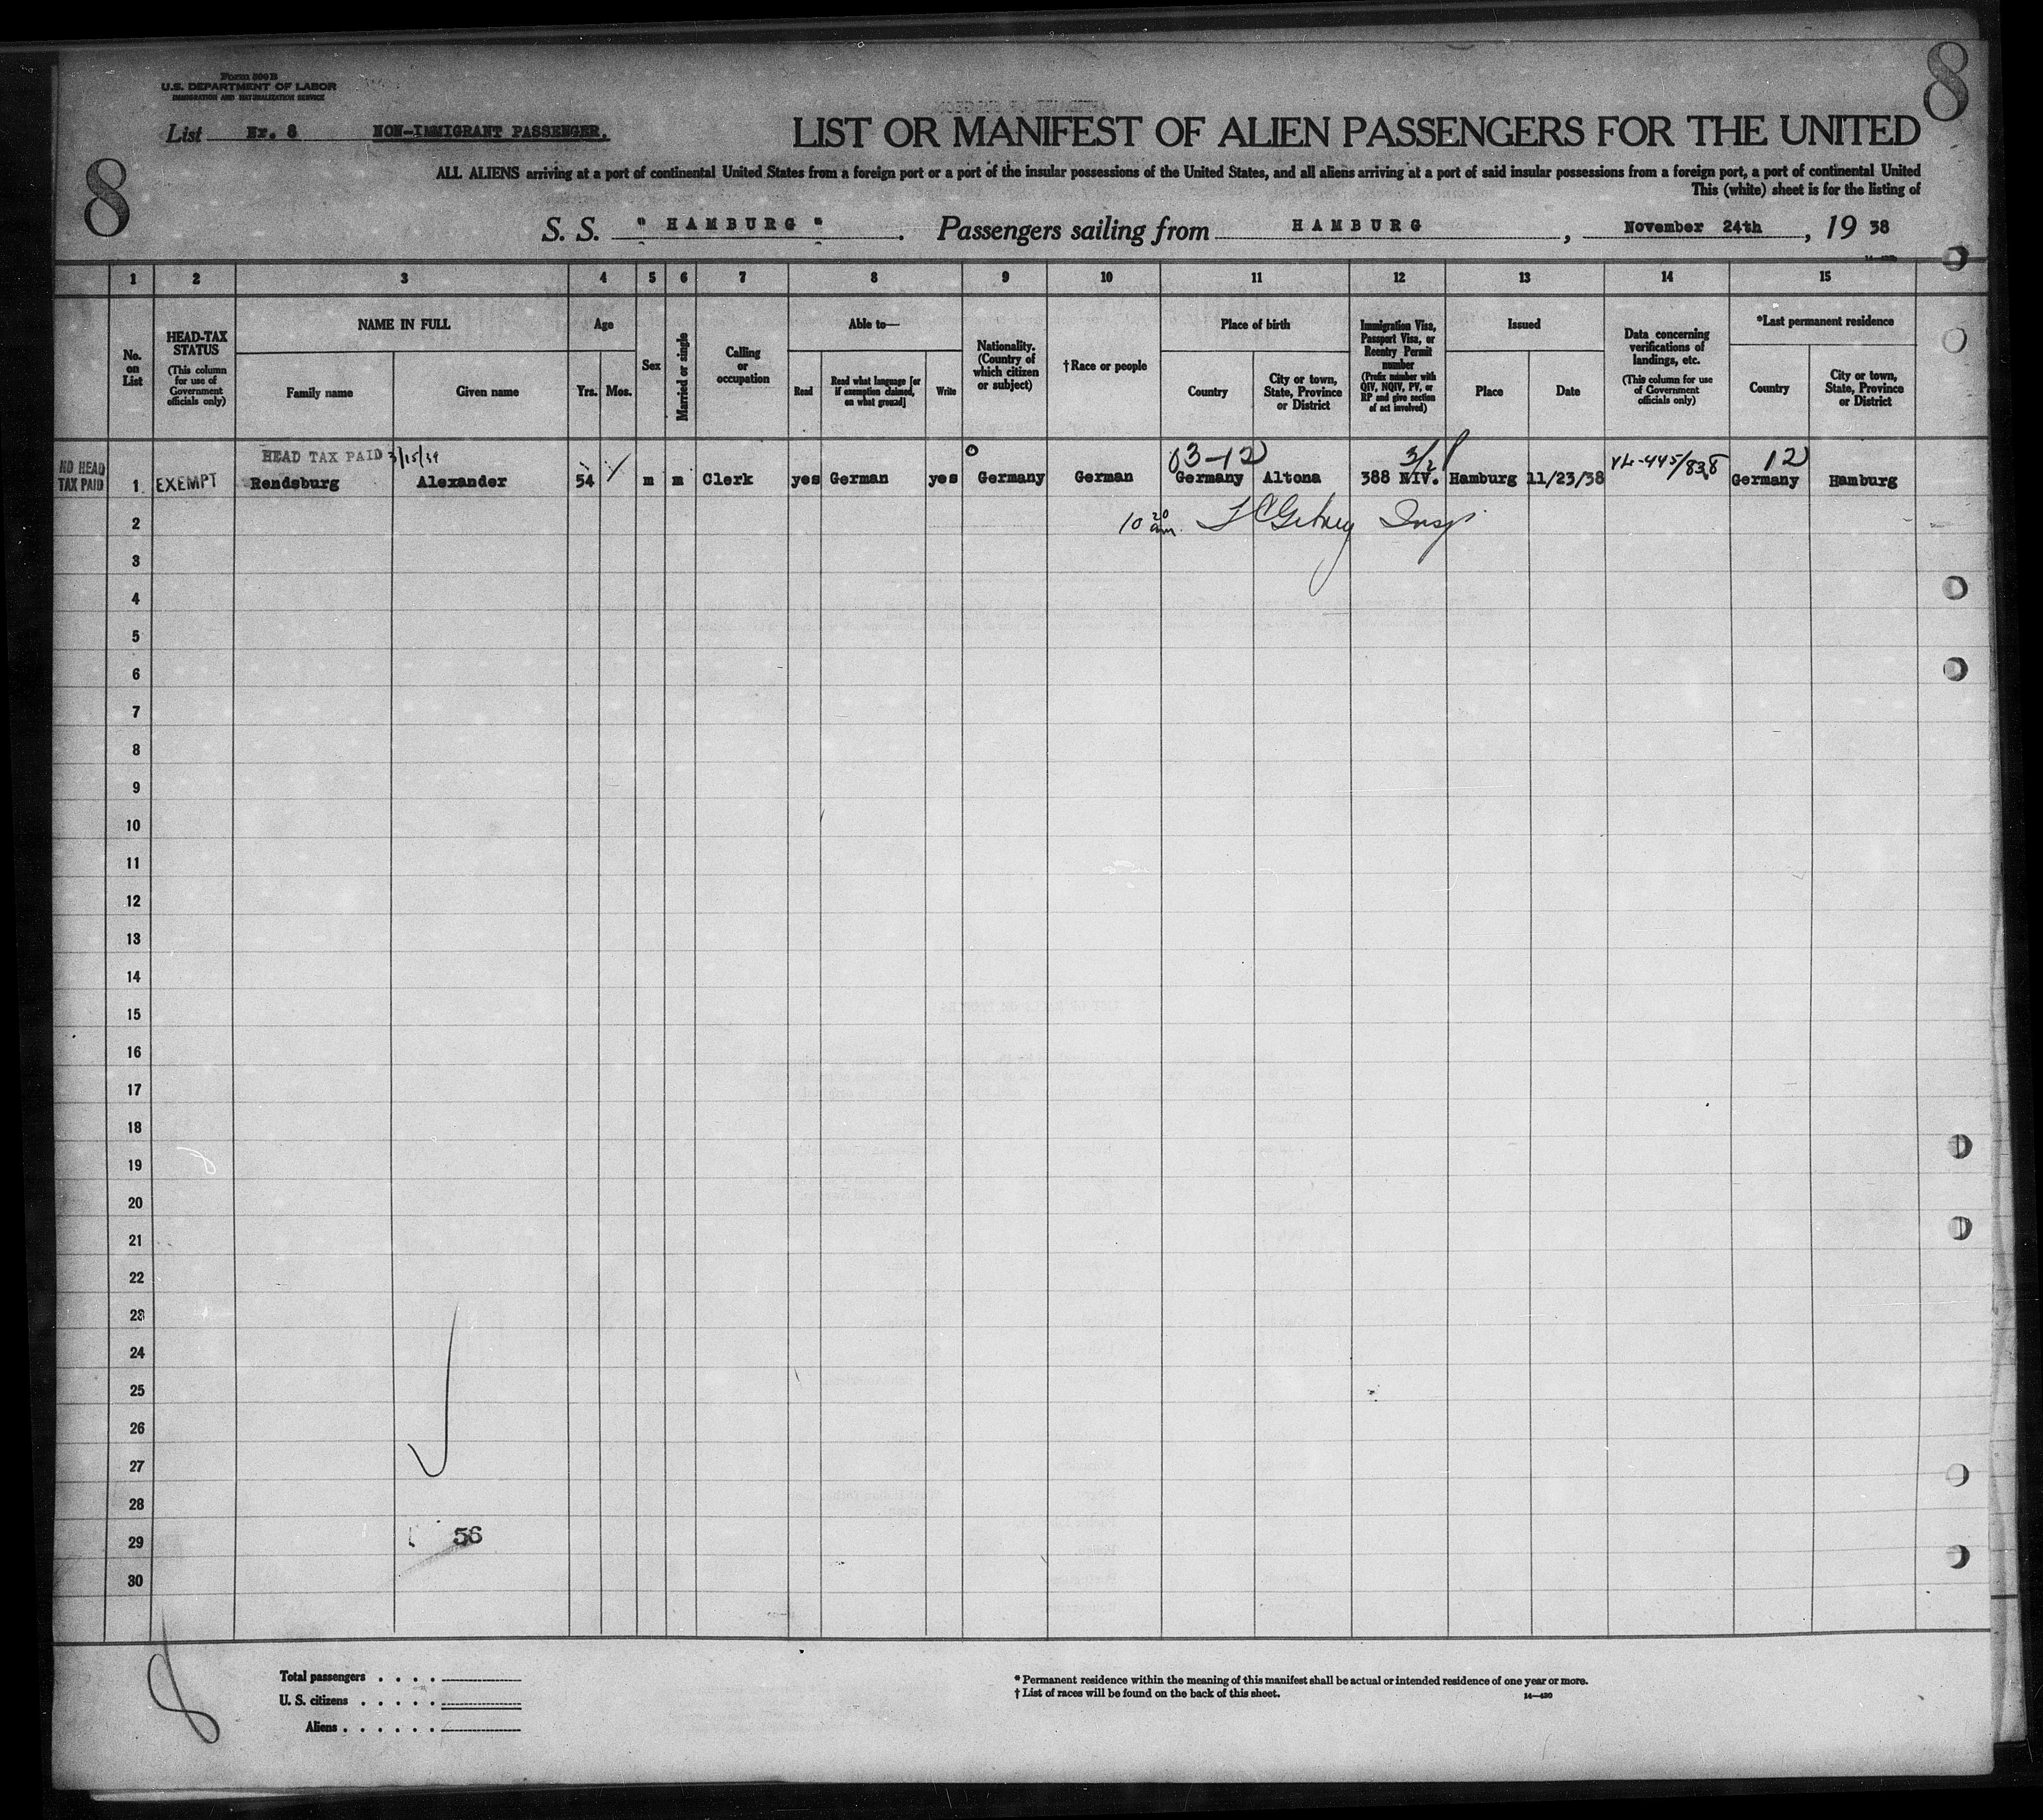 Form 500 B
U.S. DEPARTMENT OF LABOR
IMMIGRATION AND NATURALIZATION SERVICE
8
List Nr. 8 NON-IMMIGRANT PASSENGER.
LIST OR MANIFEST OF ALIEN PASSENGERS FOR THE UNITED
8
ALL ALIENS arriving at a port of continental United States from a foreign port or a port of the insular possessions of the United States, and all aliens arriving at a port of said insular possessions from a foreign port, a port of continental United
This (white) sheet is for the listing of
S. S. " HAMBURG ". Passengers sailing from HAMBURG, November 24th, 19 38
1 2 3 4 5 6 7 8 9 10 11 12 13 14 15
No. on List
HEAD-TAX STATUS (This column for use of Government officials only)
NAME IN FULL
Family name Given name
Age
Yrs. Mos.
Sex
Married or single
Calling or occupation
Able to—
Read Read what language [or if exemption claimed, on what ground] Write
Nationality. (Country of which citizen or subject)
†Race or people
Place of birth
Country City or town, State, Province or District
Immigration Visa, Passport Visa, or Reentry Permit number (Prefix number with QIV, NQIV, PV, or RP and give section of act involved)
Issued
Place Date
Data concerning verifications of landings, etc. (This column for use of Government officials only)
*Last permanent residence
Country City or town, State, Province or District
NO HEAD TAX PAID
HEAD TAX PAID 3/15/39 03-12 3/2 12
1 EXEMPT Rendsburg Alexander 54 m m Clerk yes German yes Germany German Germany Altona 388 NIV. Hamburg 11/23/38 VL-445/838 Germany Hamburg
2 10 20 am. Insp.
3
4
5
6
7
8
9
10
11
12
13
14
15
16
17
18
19
20
21
22
23
24
25
26
27
28
29 56
30
8
Total passengers . . . .
U. S. citizens . . . . .
Aliens . . . . . .
* Permanent residence within the meaning of this manifest shall be actual or intended residence of one year or more.
† List of races will be found on the back of this sheet.
14—430